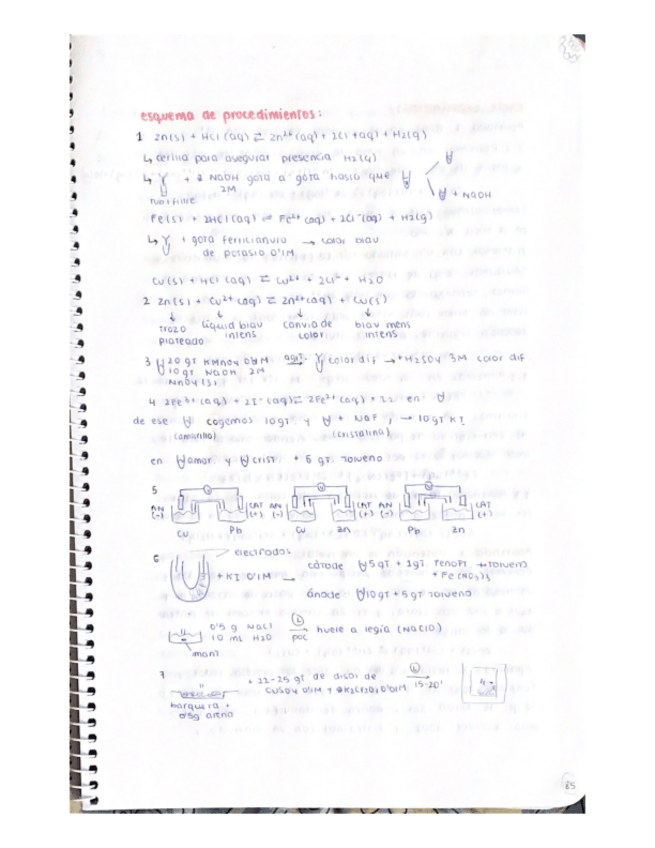 esquema de procedimientos:
1 Zn(s) + HCl (aq) ⇄ Zn²⁺(aq) + 2Cl⁻(aq) + H₂(g)
↳ cerilla para asegurar presencia H₂(g)
↳ + 2 NaOH gota a gota hasta que
2M
+ NaOH
Fe(s) + 2HCl(aq) ⇌ Fe²⁺(aq) + 2Cl⁻(aq) + H₂(g)
↳ + gota ferricianuro → color blau
de potasio 0'1M
Cu(s) + HCl (aq) ⇄ Cu²⁺ + 2Cl⁻ + H₂O
2 Zn(s) + Cu²⁺(aq) ⇄ Zn²⁺(aq) + Cu(s)
↓ ↓ ↓ ↓
trozo líquid blau canvia de blau mens
plateado intens color intens
3 20 gt KMnO₄ agit. color dif → + H₂SO₄ 3M color dif
10 gt NaOH 2M
4 2Fe³⁺(aq) + 2I⁻(aq) ⇄ 2Fe²⁺(aq) + I₂ en
de ese cogemos 10 gt y + NaF, → 10 gt KI
(amarillo) (cristalina)
en amar. y crist. + 5 gt. tolueno
5
AN (-) CAT (+) AN (-) CAT (+) AN (-) CAT (+)
Cu Pb Cu Zn Pb Zn
6 electrodos
+ KI 0'1M → cátode 5 gt + 1 gt. fenoft. → tolueno
+ Fe(NO₃)₃
ánode 10 gt + 5 gt tolueno
0'5 g NaCl
10 mL H₂O
poc
huele a legía (NaClO)
7
+ 22-25 gt de disol de
CuSO₄ 0'1M + K₂Cr₂O₇ 0'01M
15-20'
barqueta +
0'5g arena
85